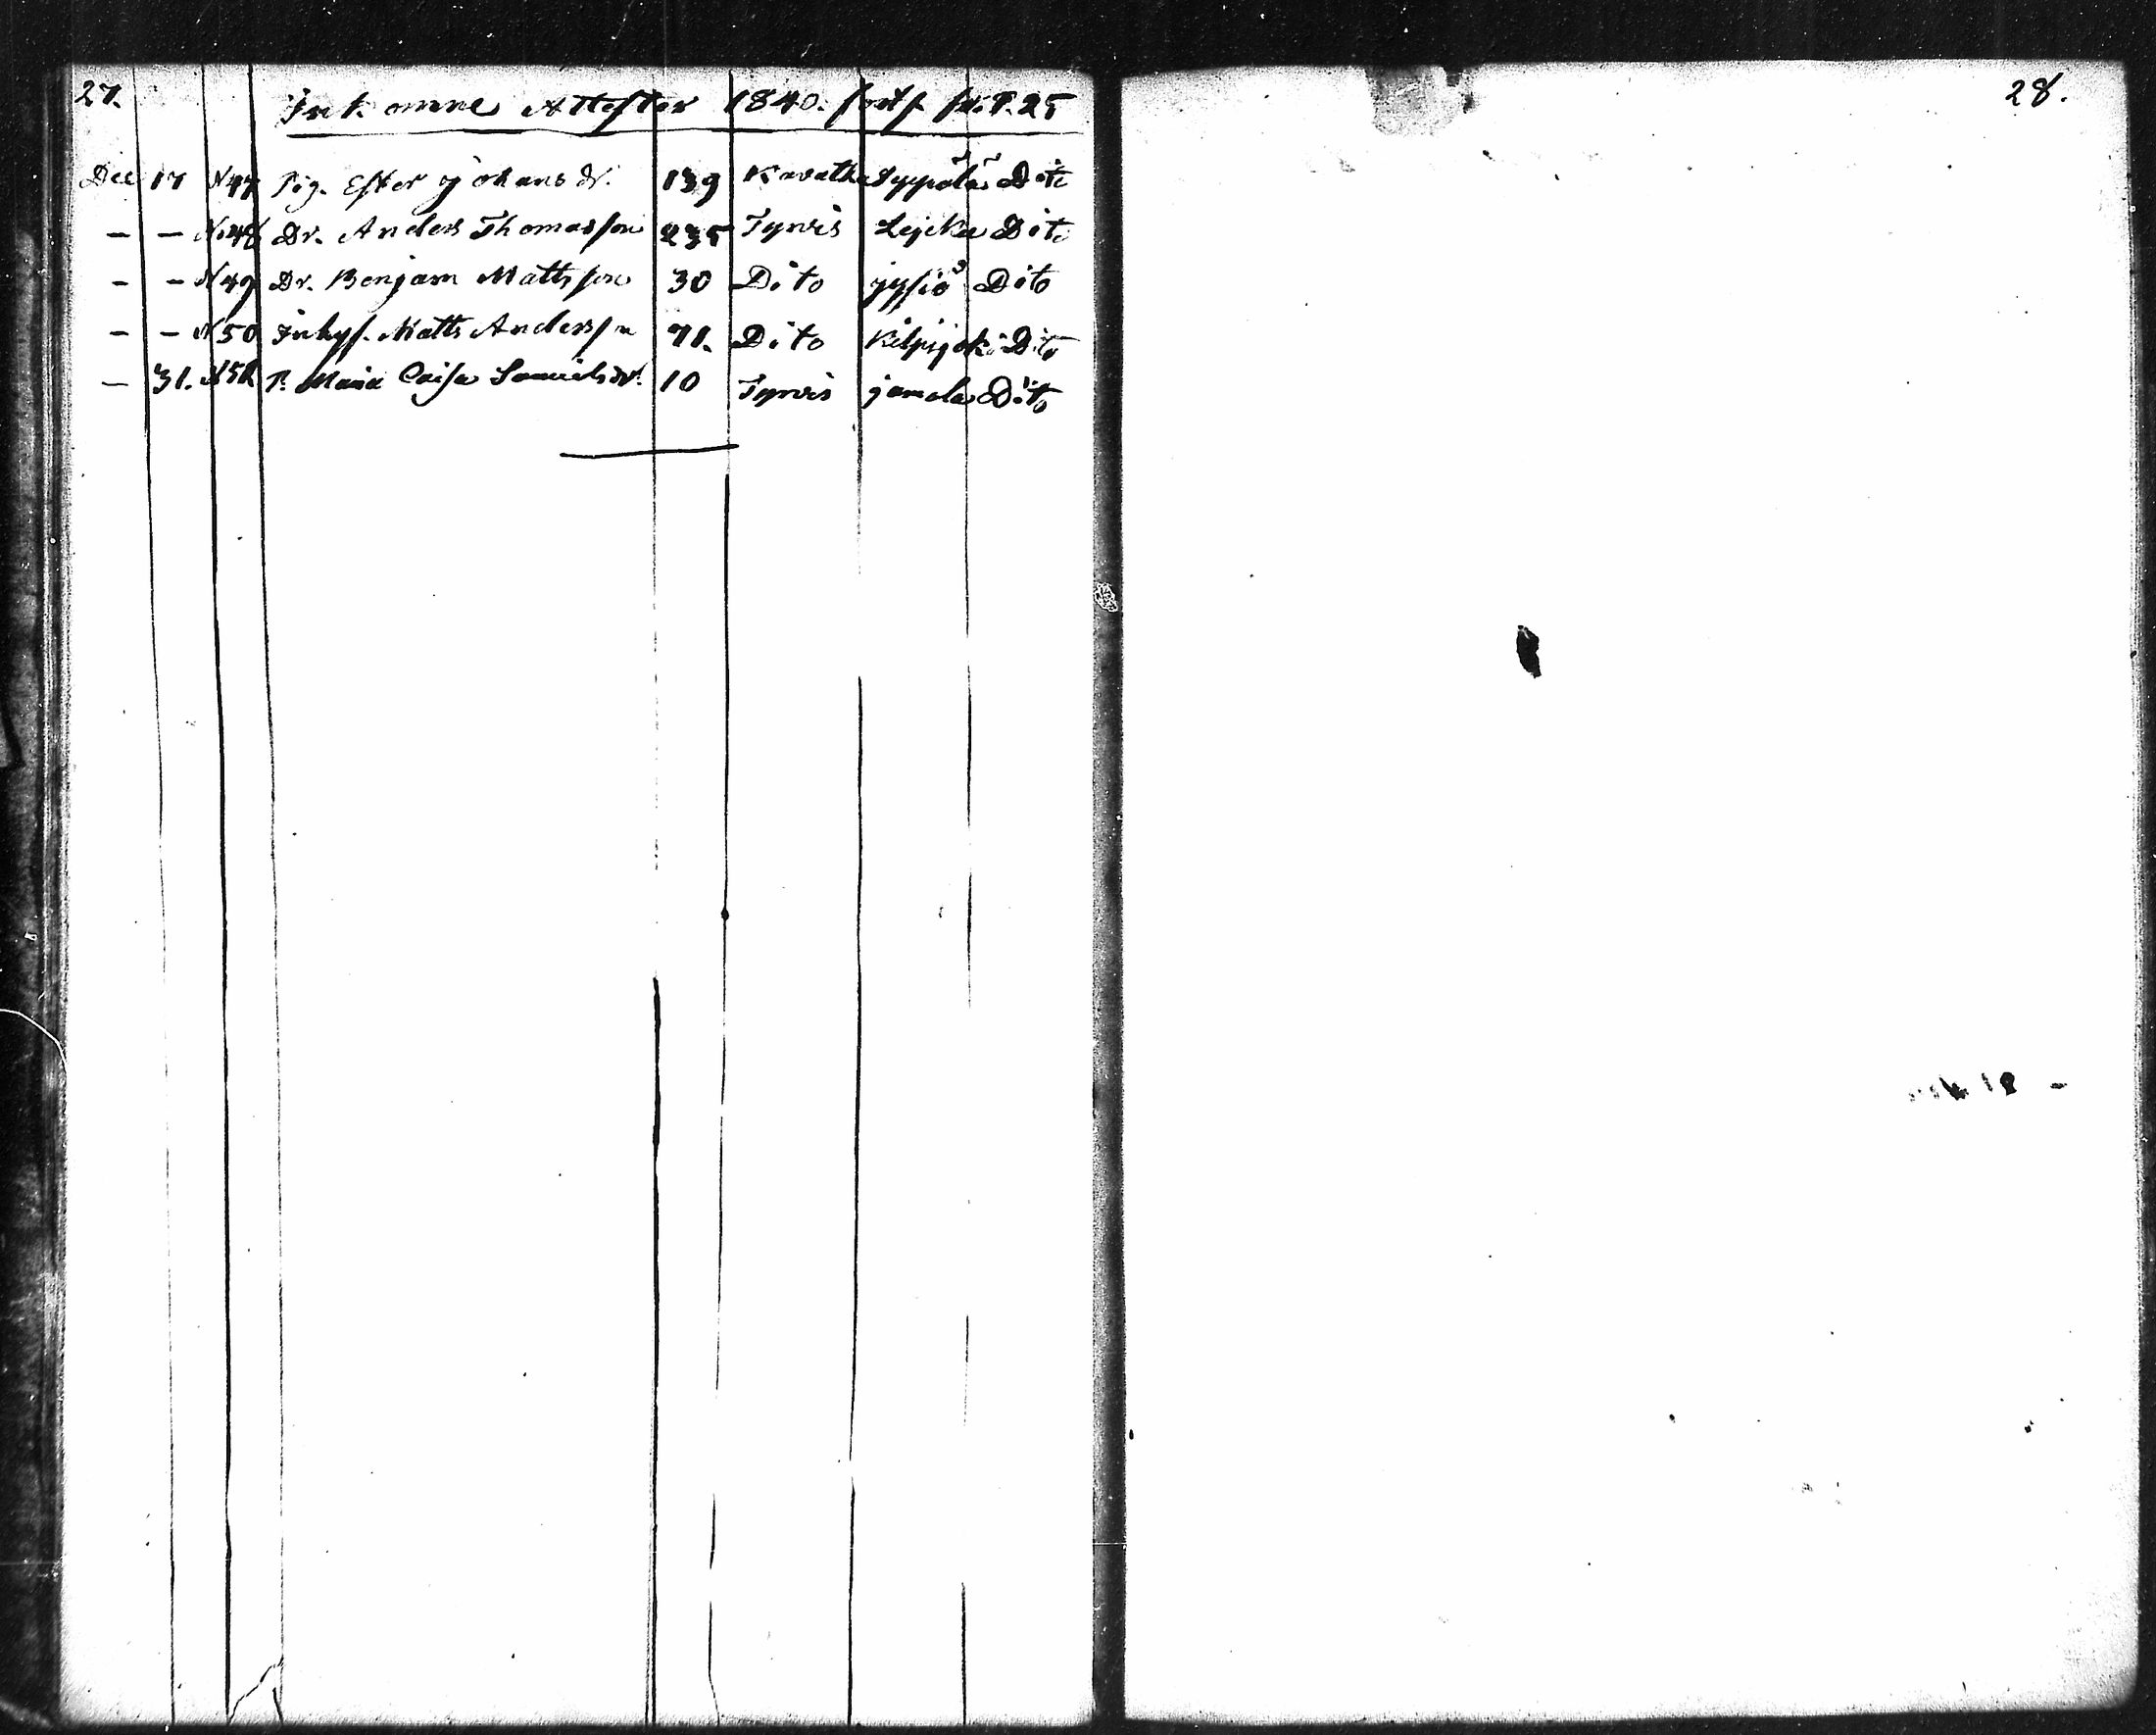 27.
Inkomne Attester 1840. forts. fr. P. 25
Dec 17 N47 Pig. Ester Johansdr. 139 Kavatha Seppälä Dito
— — N48 Dr. Anders Thomasson 235 Tyrvis Dito
— — N49 Dr. Benjam Mattsson 30 Dito Dito
— — N50 Inhys. Matts Andersson 71. Dito Kilpijoki Dito
— 31. N51 P. Maria Caisa Samuelsdr. 10 Tyrvis jamala Dito
28.